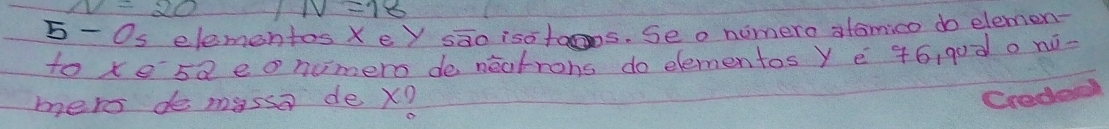 N = 20 N = 18
5 - Os elementos X e Y são isótonos. Se o número atômico do elemen-
to x é 52 e o número de nêutrons do elementos Y é 76, qual o nú-
mero de massa de X?
Credeal